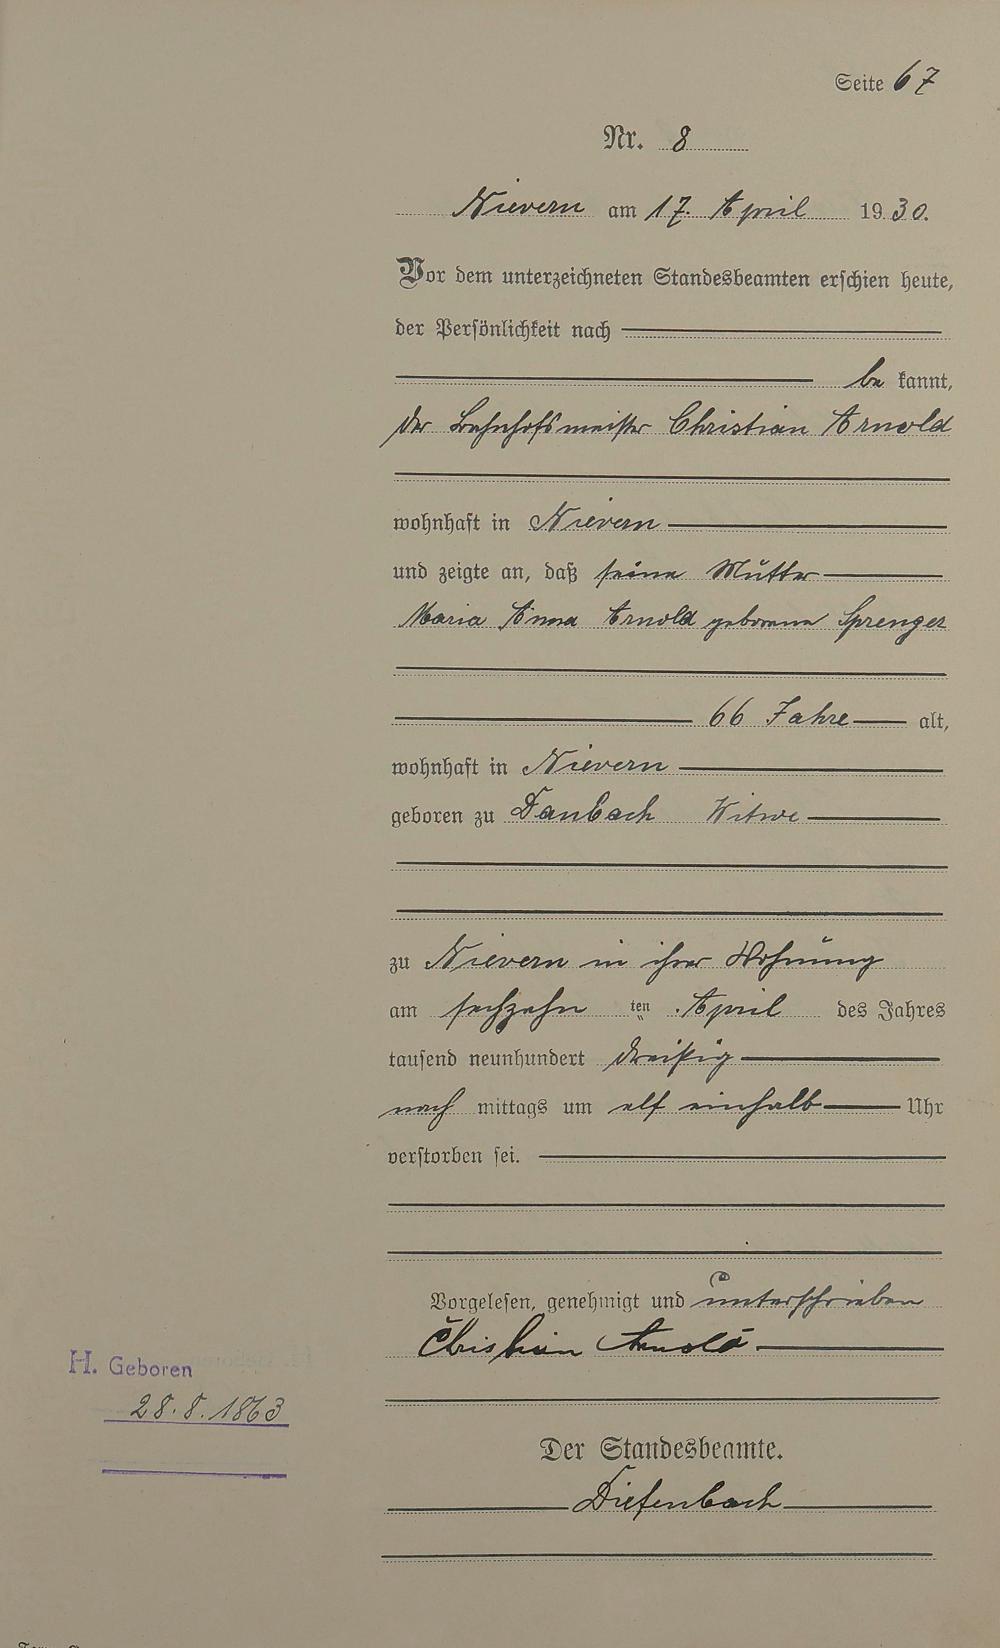 Seite 67
Nr. 8
Nievern am 17. April 1930.
Vor dem unterzeichneten Standesbeamten erschien heute,
der Persönlichkeit nach
be kannt,
der Bahnhofsmeister Christian Arnold
wohnhaft in Nievern
und zeigte an, daß seine Mutter
Maria Anna Arnold geborene Sprenger
66 Jahre alt,
wohnhaft in Nievern
geboren zu Daubach Witwe
zu Nievern in ihrer Wohnung
am sechzehn ten April des Jahres
tausend neunhundert dreißig
nach mittags um elf einhalb Uhr
verstorben sei.
Vorgelesen, genehmigt und unterschrieben
Christian Arnold
H. Geboren
28.8.1863
Der Standesbeamte.
Diefenbach